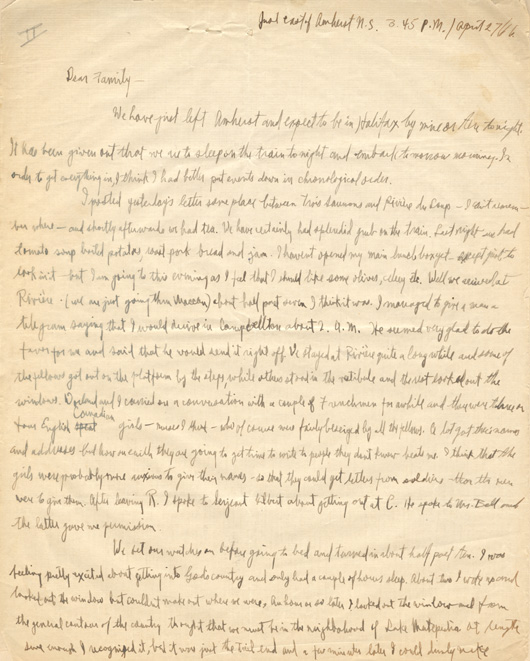 II
Just east of Amherst N.S. 3.45 P.M./April 27/16
Dear Family—
We have just left Amherst and expect to be in Halifax by nine or ten tonight.
It has been given out that we are to sleep on the train tonight and embark tomorrow morning. In
order to get everything in I think I had better put events down in chronological order.
I posted yesterday's letter some place between Trois Saumons and Rivière du Loup — I don't remem-
ber where — and shortly afterwards we had tea. We have certainly had splendid grub on the train. Last night we had
tomato soup boiled potatoes roast pork bread and jam. I haven't opened my main lunch except just to
look in it — but I am going to this evening as I feel that I should like some olives, celery etc. Well we arrived at
Rivière (we are just going thru Maccan) about half past seven I think it was. I managed to give a man a
telegram saying that I would arrive in Campbellton about 2. A.M. He seemed very glad to do the
favor for me and said that he would send it right off. We stayed at Rivière quite a long while and some of
the fellows got out on the platform by the steps while others stood in the vestibule and the rest looked out the
windows. and I carried on a conversation with a couple of Frenchmen for awhile and there were three or
Canadian
four English girls — nurses I think — who of course were fairly besieged by all the fellows. A lot got their names
and address but how on earth they are going to get time to write to people they don't know beats me. I think that the
girls were probably more anxious to give their names — so that they could get letters from soldiers — than the men
were to give them. After leaving R. I spoke to Sergeant about getting out at C. He spoke to Mr. Ball and
the latter gave me permission.
We set our watches on before going to bed and turned in about half past ten. I was
feeling pretty excited about getting into God's country and only had a couple of hours sleep. About two I woke up and
looked out the window but couldn't make out where we were. An hour or so later I looked out the window and from
the general contour of the country thought that we must be in the neighborhood of Lake Matapedia at length
sure enough I recognized it, but it was just the tail end and a few minutes later I could dimly make